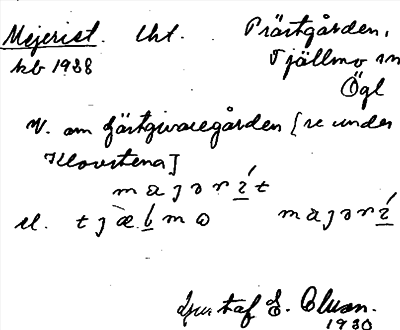 Mejerist. Uht. Prästgården,
kb 1938 Tjällmo sn
Ögl
N. om Gästgivaregården [se under
Klovstena]
majərí̱t
el. tjæ̀ḻ́mω majərí̱
Gustaf E. Cluson.
1930